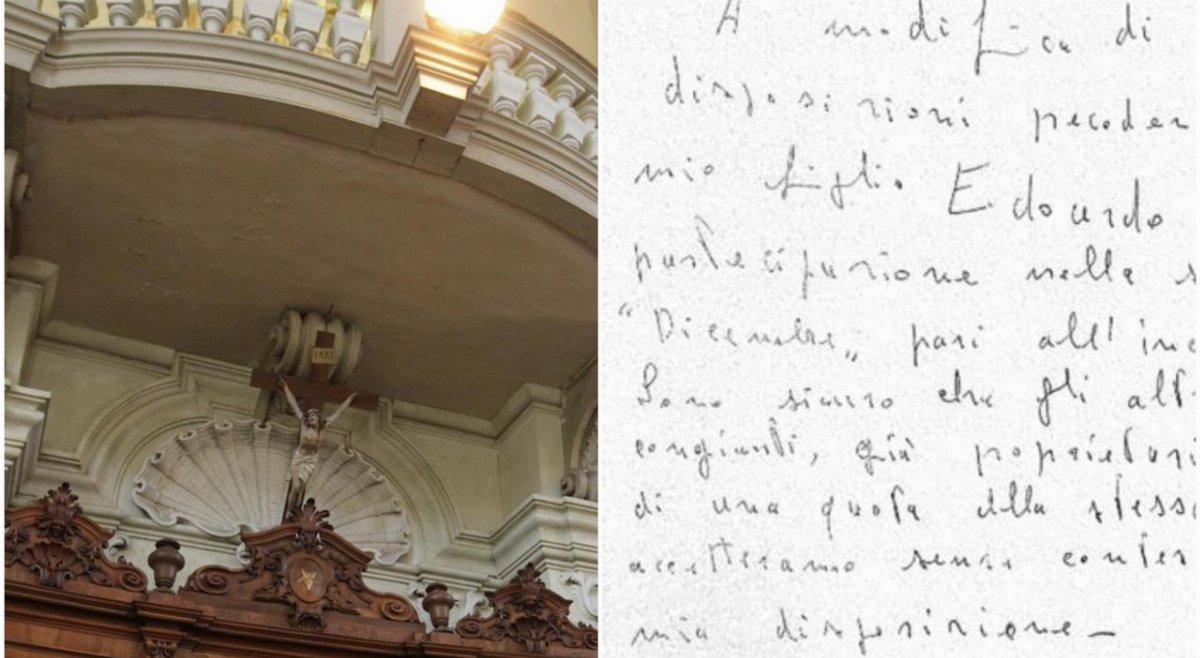 INRI
A modifica di
disposizioni preceden
mio figlio Edoardo
partecipazione nella s
“Dicembre„ pari all'in
Sono sicuro che gli alt
congiunti, già proprietari
di una quota della stessa
accetteranno senza contes
mia disposizione –